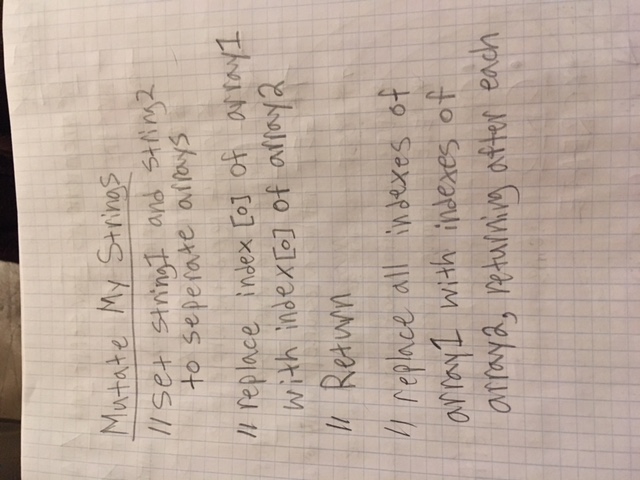 Mutate My Strings
// Set string1 and string2
to seperate arrays
// replace index [0] of array1
with index[0] of array2
// Return
// replace all indexes of
array1 with indexes of
array2, returning after each